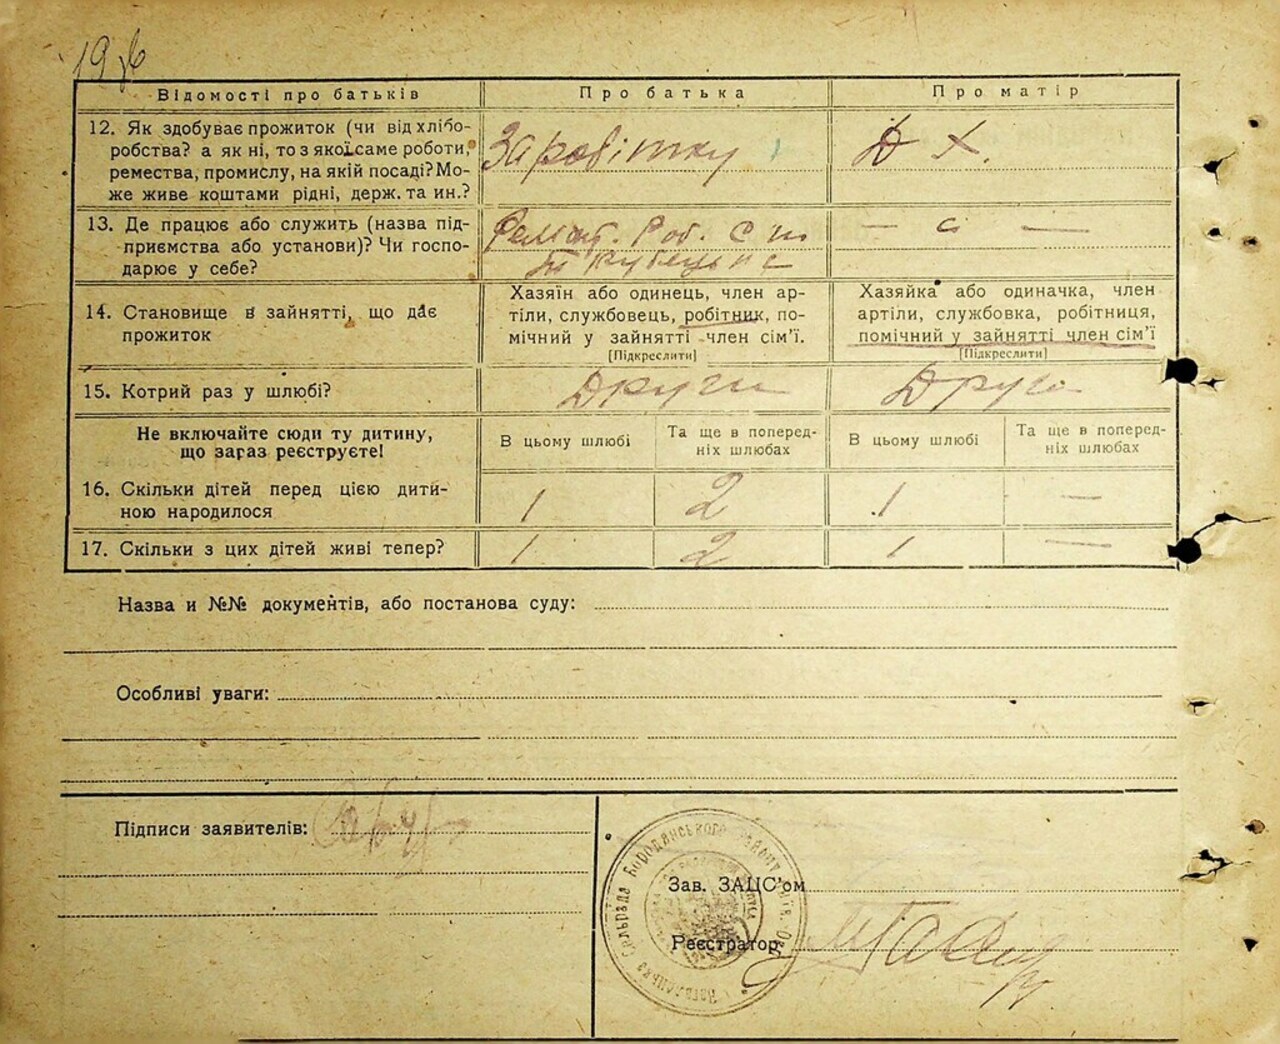 Відомості про батьків Про батька Про матір
12. Як здобуває прожиток (чи від хлібо- Заробітку Д Х.
робства? а як ні, то з якої саме роботи,
ремества, промислу, на якій посаді? Мо-
же живе коштами рідні, держ. та ин.?
13. Де працює або служить (назва під- Ремонт. Роб. — " —
приємства або установи)? Чи госпо-
дарює у себе?
14. Становище в зайнятті, що дає
прожиток
Хазяїн або одинець, член ар-
тіли, службовець, робітник, по-
мічний у зайнятті член сім'ї.
[Підкреслити]
Хазяйка або одиначка, член
артіли, службовка, робітниця,
помічний у зайнятті член сім'ї
[Підкреслити]
15. Котрий раз у шлюбі? Други Друга
Не включайте сюди ту дитину,
що зараз реєструєте!
В цьому шлюбі
Та ще в поперед-
ніх шлюбах
В цьому шлюбі
Та ще в поперед-
ніх шлюбах
16. Скільки дітей перед цією дити- 1 2 1 —
ною народилося
17. Скільки з цих дітей живі тепер? 1 2 1 —
Назва и №№ документів, або постанова суду:
Особливі уваги:
Підписи заявителів:
Зав. ЗАЦС'ом
Реєстратор
Сільрада Бородянського